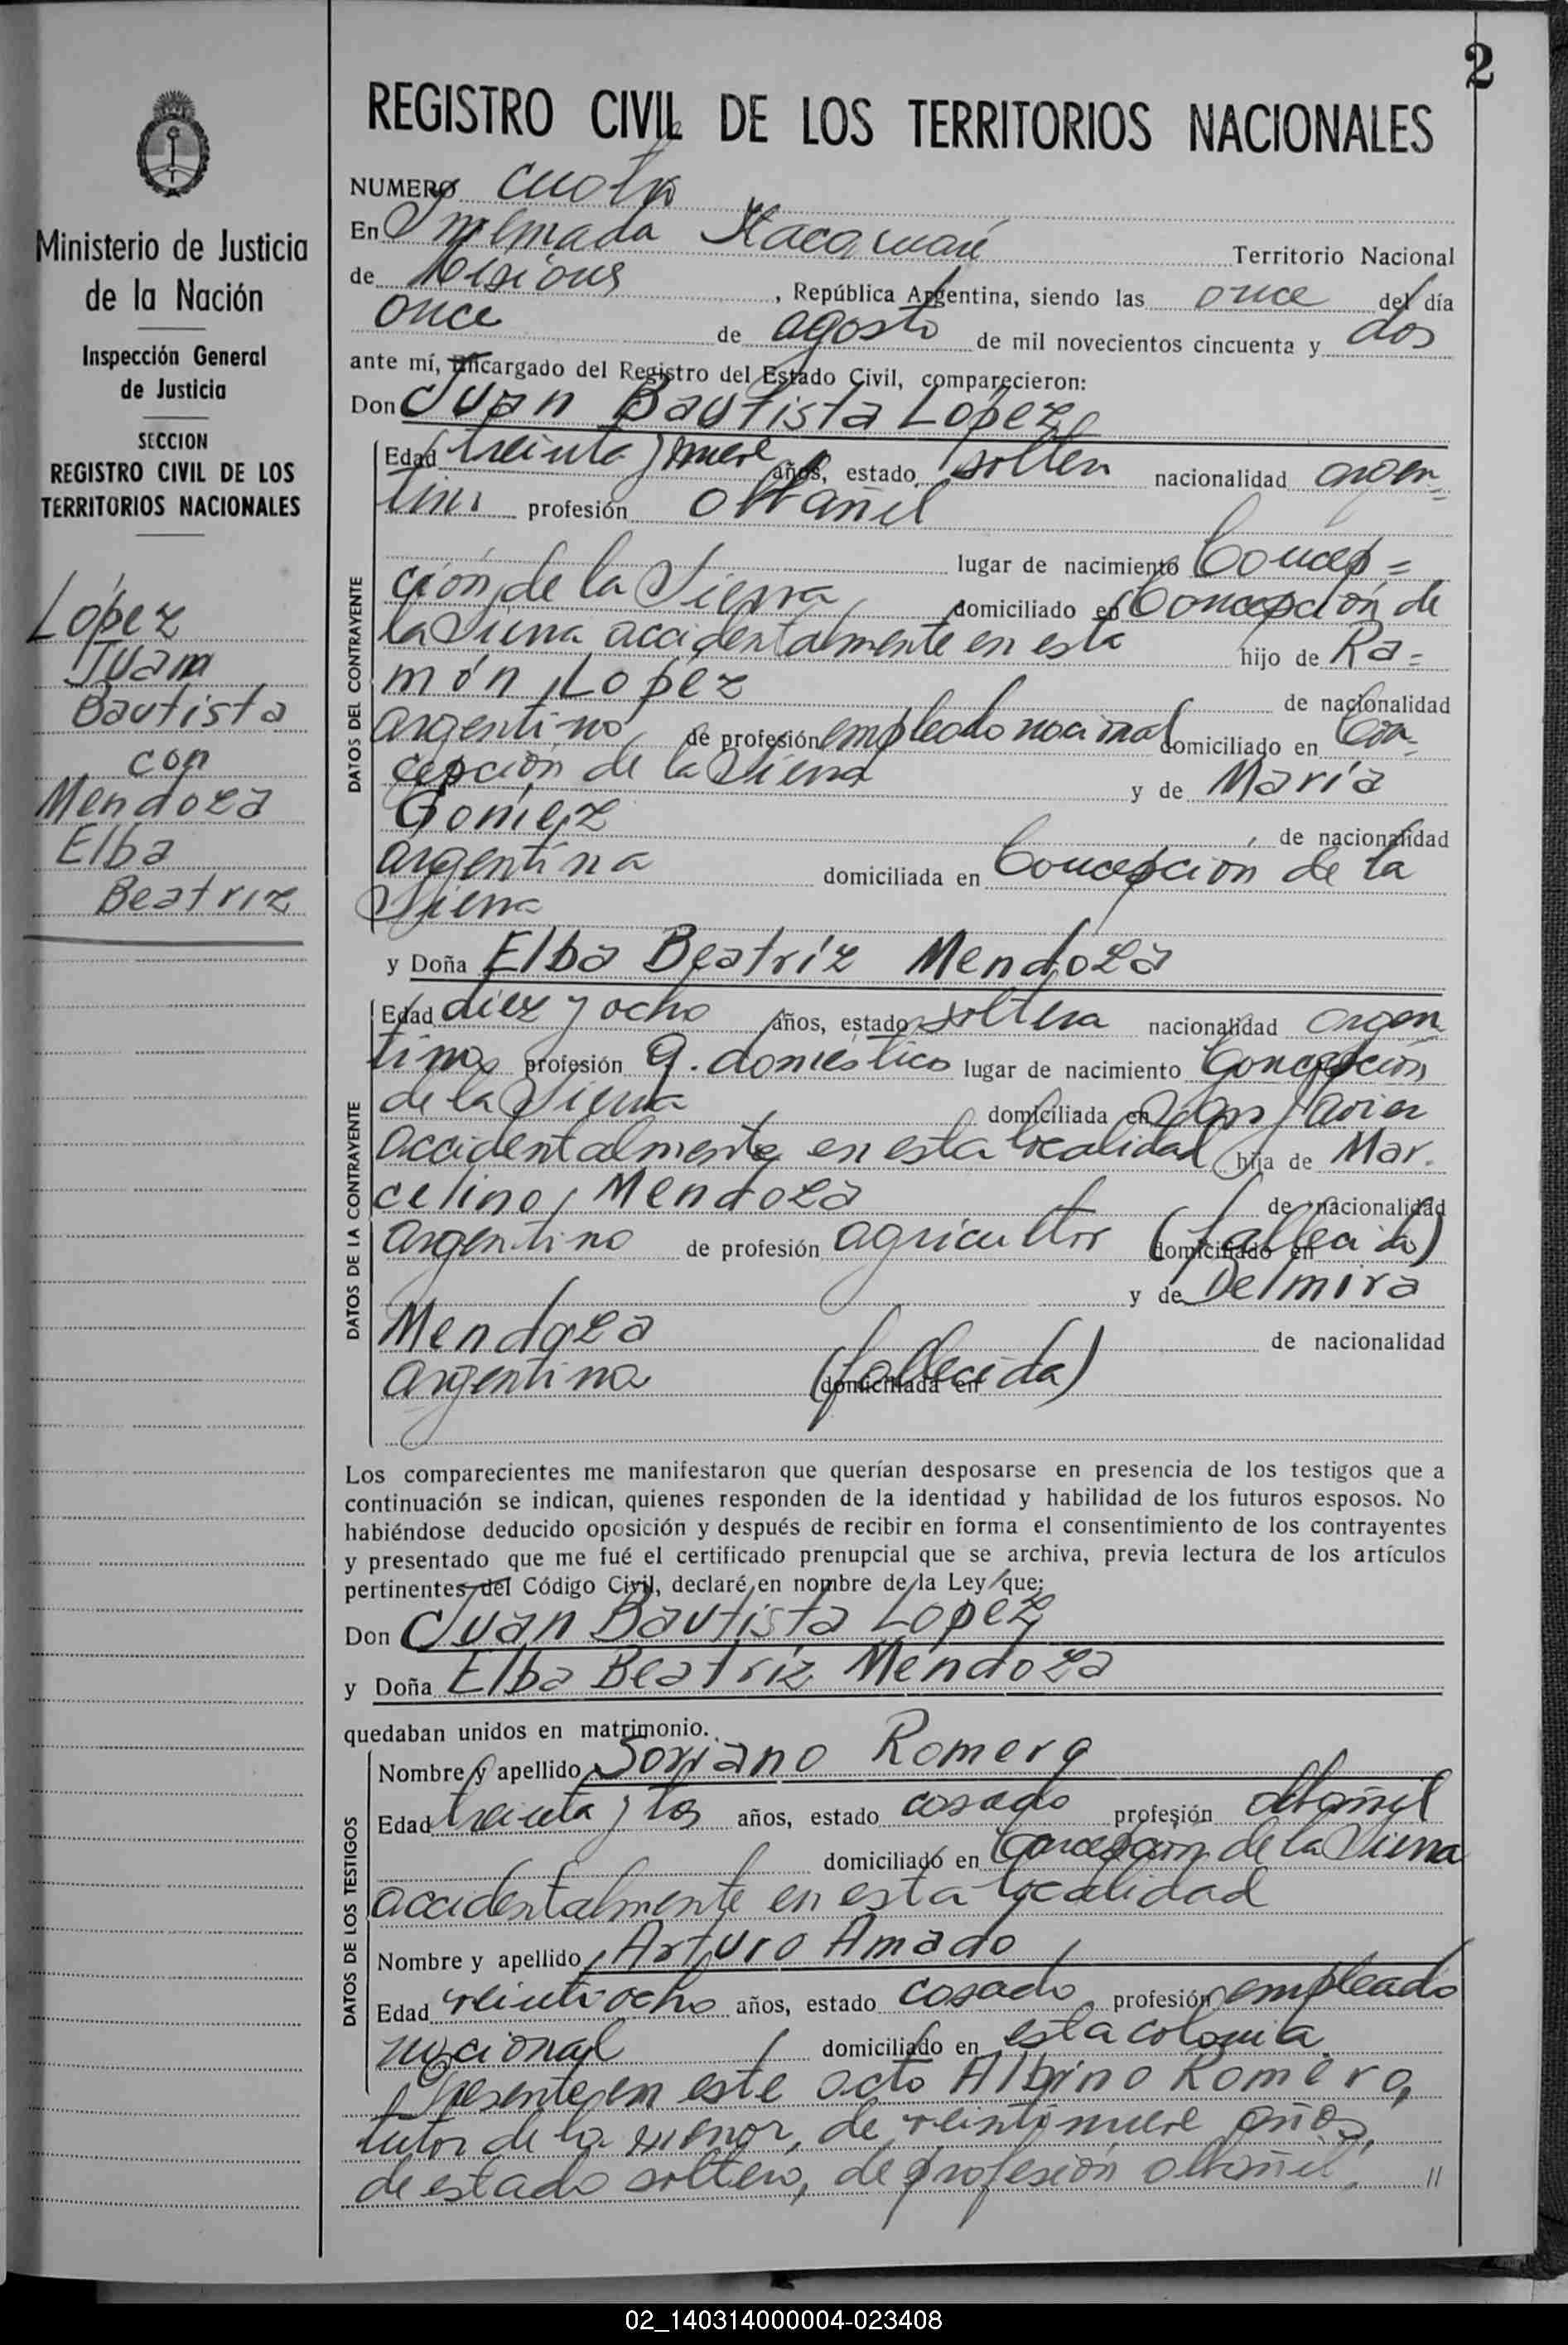 2
REGISTRO CIVIL DE LOS TERRITORIOS NACIONALES
Ministerio de Justicia
de la Nación
Inspección General
de Justicia
SECCION
REGISTRO CIVIL DE LOS
TERRITORIOS NACIONALES
López
Juan
Bautista
con
Mendoza
Elba
Beatriz
NUMERO cuatro
En Itacaruaré Territorio Nacional
de Misiones, República Argentina, siendo las once del día
once de agosto de mil novecientos cincuenta y dos
ante mí, Encargado del Registro del Estado Civil, comparecieron:
Don Juan Bautista López
DATOS DEL CONTRAYENTE
Edad treinta y nueve años, estado soltero nacionalidad argen=
tino profesión albañil
lugar de nacimiento Concep=
ción de la Sierra domiciliado en Concepción de
la Sierra accidentalmente en esta hijo de Ra=
món López de nacionalidad
argentino de profesión empleado nacional domiciliado en Con=
cepción de la Sierra y de María
Gómez de nacionalidad
argentina domiciliada en Concepción de la
Sierra
y Doña Elba Beatriz Mendoza
DATOS DE LA CONTRAYENTE
Edad diez y ocho años, estado soltera nacionalidad argen
tina profesión q. domésticos lugar de nacimiento Concepción
de la Sierra domiciliada en San Javier
accidentalmente en esta localidad hija de Mar.
celino Mendoza de nacionalidad
argentino de profesión agricultor (fallecido) domiciliado en
y de Delmira
Mendoza de nacionalidad
argentina (fallecida) domiciliada en
Los comparecientes me manifestaron que querían desposarse en presencia de los testigos que a
continuación se indican, quienes responden de la identidad y habilidad de los futuros esposos. No
habiéndose deducido oposición y después de recibir en forma el consentimiento de los contrayentes
y presentado que me fué el certificado prenupcial que se archiva, previa lectura de los artículos
pertinentes del Código Civil, declaré en nombre de la Ley que:
Don Juan Bautista Lopez
y Doña Elba Beatriz Mendoza
quedaban unidos en matrimonio.
DATOS DE LOS TESTIGOS
Nombre y apellido Soriano Romero
Edad treinta y tos años, estado casado profesión albañil
domiciliado en Concepción de la Sierra
accidentalmente en esta localidad
Nombre y apellido Arturo Amado
Edad veintiocho años, estado casado profesión empleado
nacional domiciliado en esta colonia.
Presente en este acto Albino Romero,
tutor de la menor, de veintinueve años,
de estado soltero, de profesión albañil, //
02_140314000004-023408